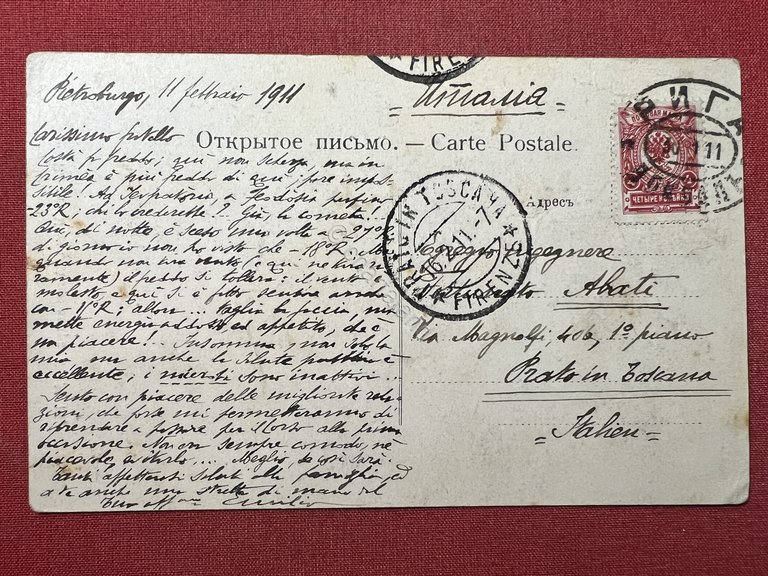 Pietroburgo, 11 febbraio 1911
= Италія =
Carissimo fratello
Открытое письмо. — Carte Postale.
Costà fa freddo; qui non scherza, ma in
Crimea è più freddo di qui; pare impos-
sibile! Ad Eupatoria, a Feodosia perfino
23°R, chi lo crederebbe? Già, la cometa!
Qui, di notte, è sceso una volta a -27°R
di giorno io non ho visto che -18°R. Ma
quando non tira vento (e qui tira ra-
ramente) il freddo si tollera; il vento
molesto e qui si è fatto sentire anche
con -11°R; allora... taglia la faccia, ma
mette energia addosso ed appetito, che è
un piacere! Insomma, non solo la
mia ma anche la salute è
eccellente; i sono inattivi...
Sento con piacere delle migliorate rela-
zioni, che forse mi permetteranno di
riprendere a passare per costà alla prima
occasione. Non era sempre comodo, nè
piacevole evitarlo... Meglio, se così sarà.
Tanti affettuosi saluti alla famiglia, ed
a te anche una stretta di mano del
Tuo aff.mo Emilio
Адресъ
Egregio Ingegnere
Abati
Via Magnolfi 40a, 1° piano
Prato in Toscana
= Italien =
PRATO IN TOSCANA
* (FIRENZE) *
(FIRE
РИГА
ВОКЗАЛЪ
11
ПОЧТОВАЯ МАРКА
ЧЕТЫРЕ КОП.